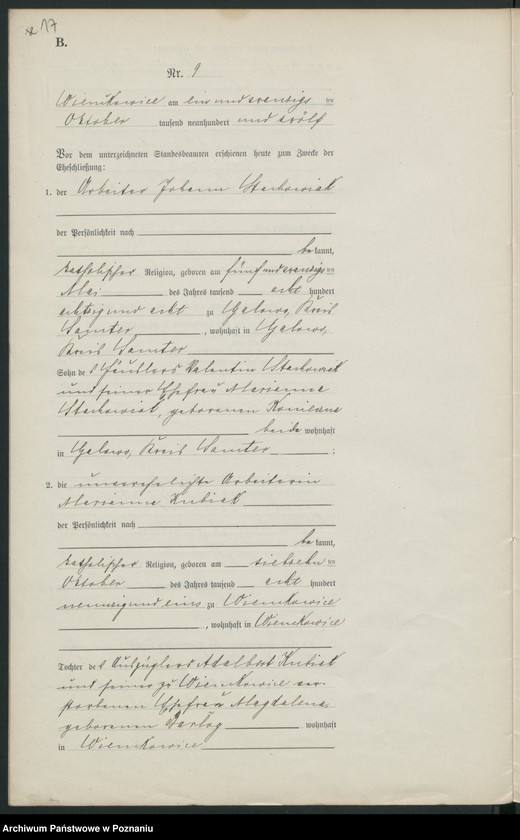 17
B.
Nr. 9
Wienskowice am ein und zwanzigsten
Oktober tausend neunhundert und zwölf
Vor dem unterzeichneten Standesbeamten erschienen heute zum Zwecke der
Eheschließung:
1. der Arbeiter Johann Stachowiak
der Persönlichkeit nach
bekannt,
katholischer Religion, geboren am fünf und zwanzigsten
Mai des Jahres tausend acht hundert
achtzig und acht zu Galowo, Kreis
Samter, wohnhaft in Galowo,
Kreis Samter
Sohn des Häuslers Valentin Stachowiak
und seiner Ehefrau Marianna
Stachowiak, geborenen
beide wohnhaft
in Galowo, Kreis Samter ;
2. die unverehelichte Arbeiterin
Marianna Kubiak
der Persönlichkeit nach
bekannt,
katholischer Religion, geboren am siebzehnten
Oktober des Jahres tausend acht hundert
neunzig und eins zu Wienskowice
, wohnhaft in Wienskowice
Tochter des Auszüglers Adalbert Kubiak
und seiner zu Wienskowice ver-
storbenen Ehefrau Magdalena,
geborenen wohnhaft
in Wienskowice
Archiwum Państwowe w Poznaniu